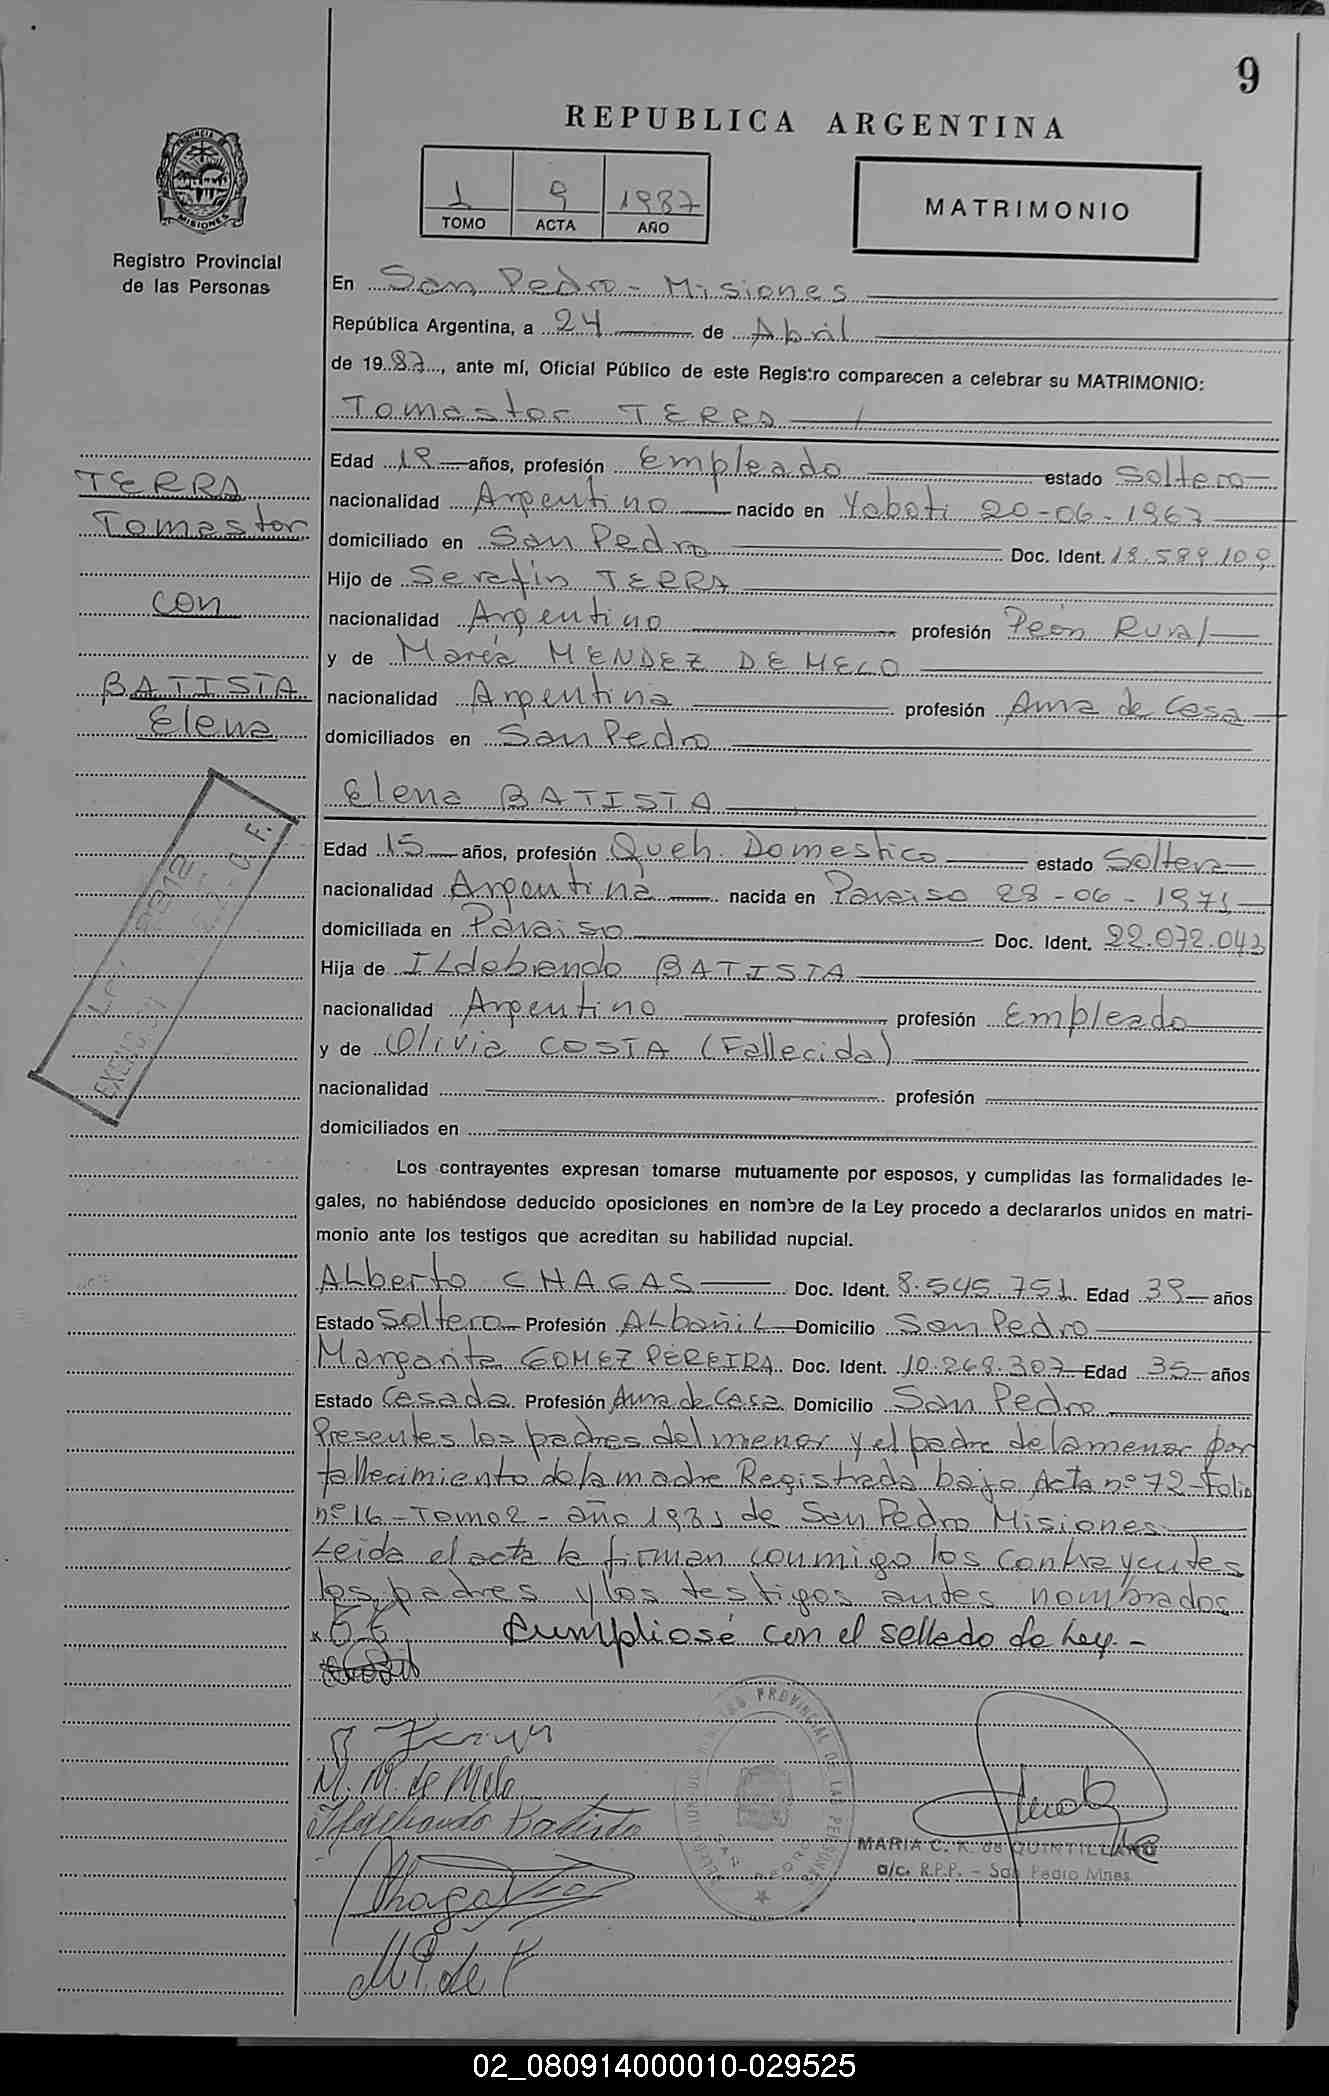 9
REPUBLICA ARGENTINA
1 9 1987
TOMO ACTA AÑO
MATRIMONIO
PROVINCIA
MISIONES
Registro Provincial
de las Personas
En San Pedro - Misiones
República Argentina, a 24 de Abril
de 1987, ante mí, Oficial Público de este Registro comparecen a celebrar su MATRIMONIO:
Tomastor TERRA
TERRA
Tomastor
con
BATISTA
Elena
Edad 19 años, profesión Empleado estado Soltero
nacionalidad Argentino nacido en Yaboti 20-06-1967
domiciliado en San Pedro Doc. Ident. 18.589.109
Hijo de Serafin TERRA
nacionalidad Argentino profesión Peón Rural
y de María MENDEZ DE MELO
nacionalidad Argentina profesión Ama de Casa
domiciliados en San Pedro
Elena BATISTA
Edad 15 años, profesión Queh. Domestico estado Soltera
nacionalidad Argentina nacida en Paraiso 28-06-1971
domiciliada en Paraiso Doc. Ident. 22.072.042
Hija de ILdebrando BATISTA
nacionalidad Argentino profesión Empleado
y de Olivia COSTA (Fallecida)
nacionalidad profesión
domiciliados en
Los contrayentes expresan tomarse mutuamente por esposos, y cumplidas las formalidades le-
gales, no habiéndose deducido oposiciones en nombre de la Ley procedo a declararlos unidos en matri-
monio ante los testigos que acreditan su habilidad nupcial.
ALberto CHAGAS Doc. Ident. 8.545.751 Edad 39 años
Estado Soltero Profesión ALbañiL Domicilio San Pedro
Margarita GOMEZ PEREIRA Doc. Ident. 10.269.307 Edad 35 años
Estado Casada Profesión Ama de Casa Domicilio San Pedro
Presentes los padres del menor y el padre de la menor por
fallecimiento de la madre Registrada bajo Acta nº 72-Folio
nº 16-Tomo 2-año 1981 de San Pedro Misiones
Leida el acta la firman conmigo los contrayentes
los padres y los testigos antes nombrados
Cumpliose con el sellado de Ley.-
M. M. de Melo
Ildebrando Batista
Chagas
M P. de
PROVINCIAL DE LAS PERSONAS
SAN PEDRO
MARIA C. K. de QUINTILLANO
a/c. R.P.P. - San Pedro Mnes
02_080914000010-029525